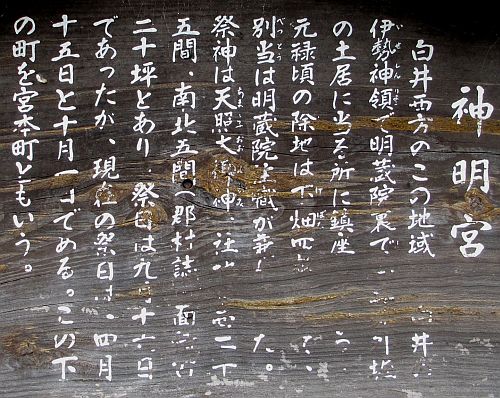 神明宮
白井西方のこの地域 白井
伊勢神領で明蔵院裏で
の土居に当る所に鎮座
元禄頃の除地は下畑四
別当は明蔵院上蔵が兼 た。
祭神は天照大御神、社 二丁
五間、南北五間(郡村誌 面
二十坪とあり、祭日は九月十六日
であったが、現在の祭日は、四月
十五日と十月一寸である。この下
の町を宮本町ともいう。